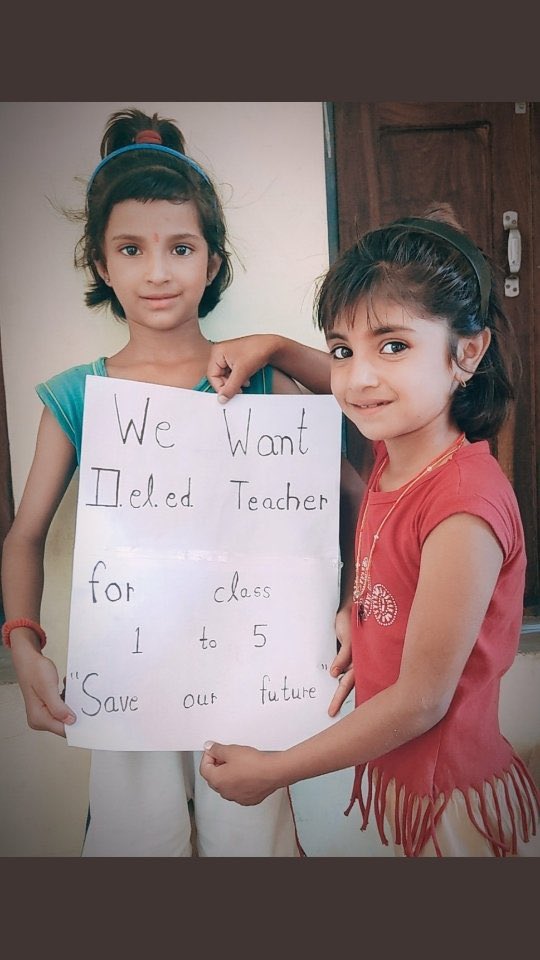 We Want
D.el.ed Teacher
for class
1 to 5
"Save our future"